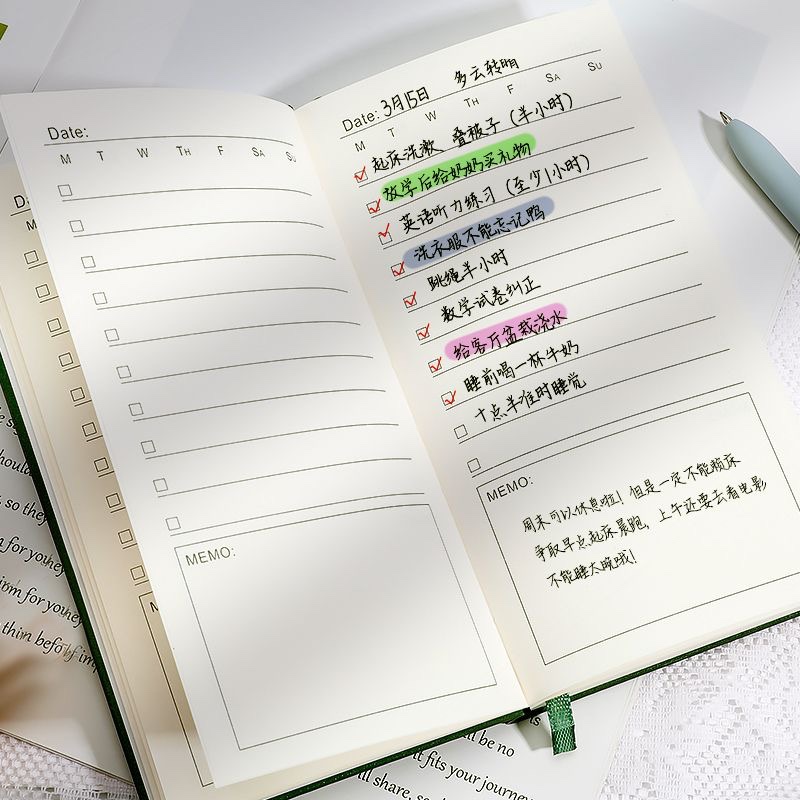 Date:
M T W TH F SA SU
MEMO:
Date: 3月15日 多云转晴
M T W TH F SA SU
起床洗漱 叠被子（半小时）
放学后给奶奶买礼物
英语听力练习（至少1小时）
洗衣服不能忘记鸭
跳绳半小时
数学试卷纠正
给客厅盆栽浇水
睡前喝一杯牛奶
十点半准时睡觉
MEMO:
周末可以休息啦！但是一定不能赖床
争取早点起床晨跑，上午还要去看电影
不能睡太晚哦！
, so they
m for you
thim befo
be no
t fits your journey
ll share, so